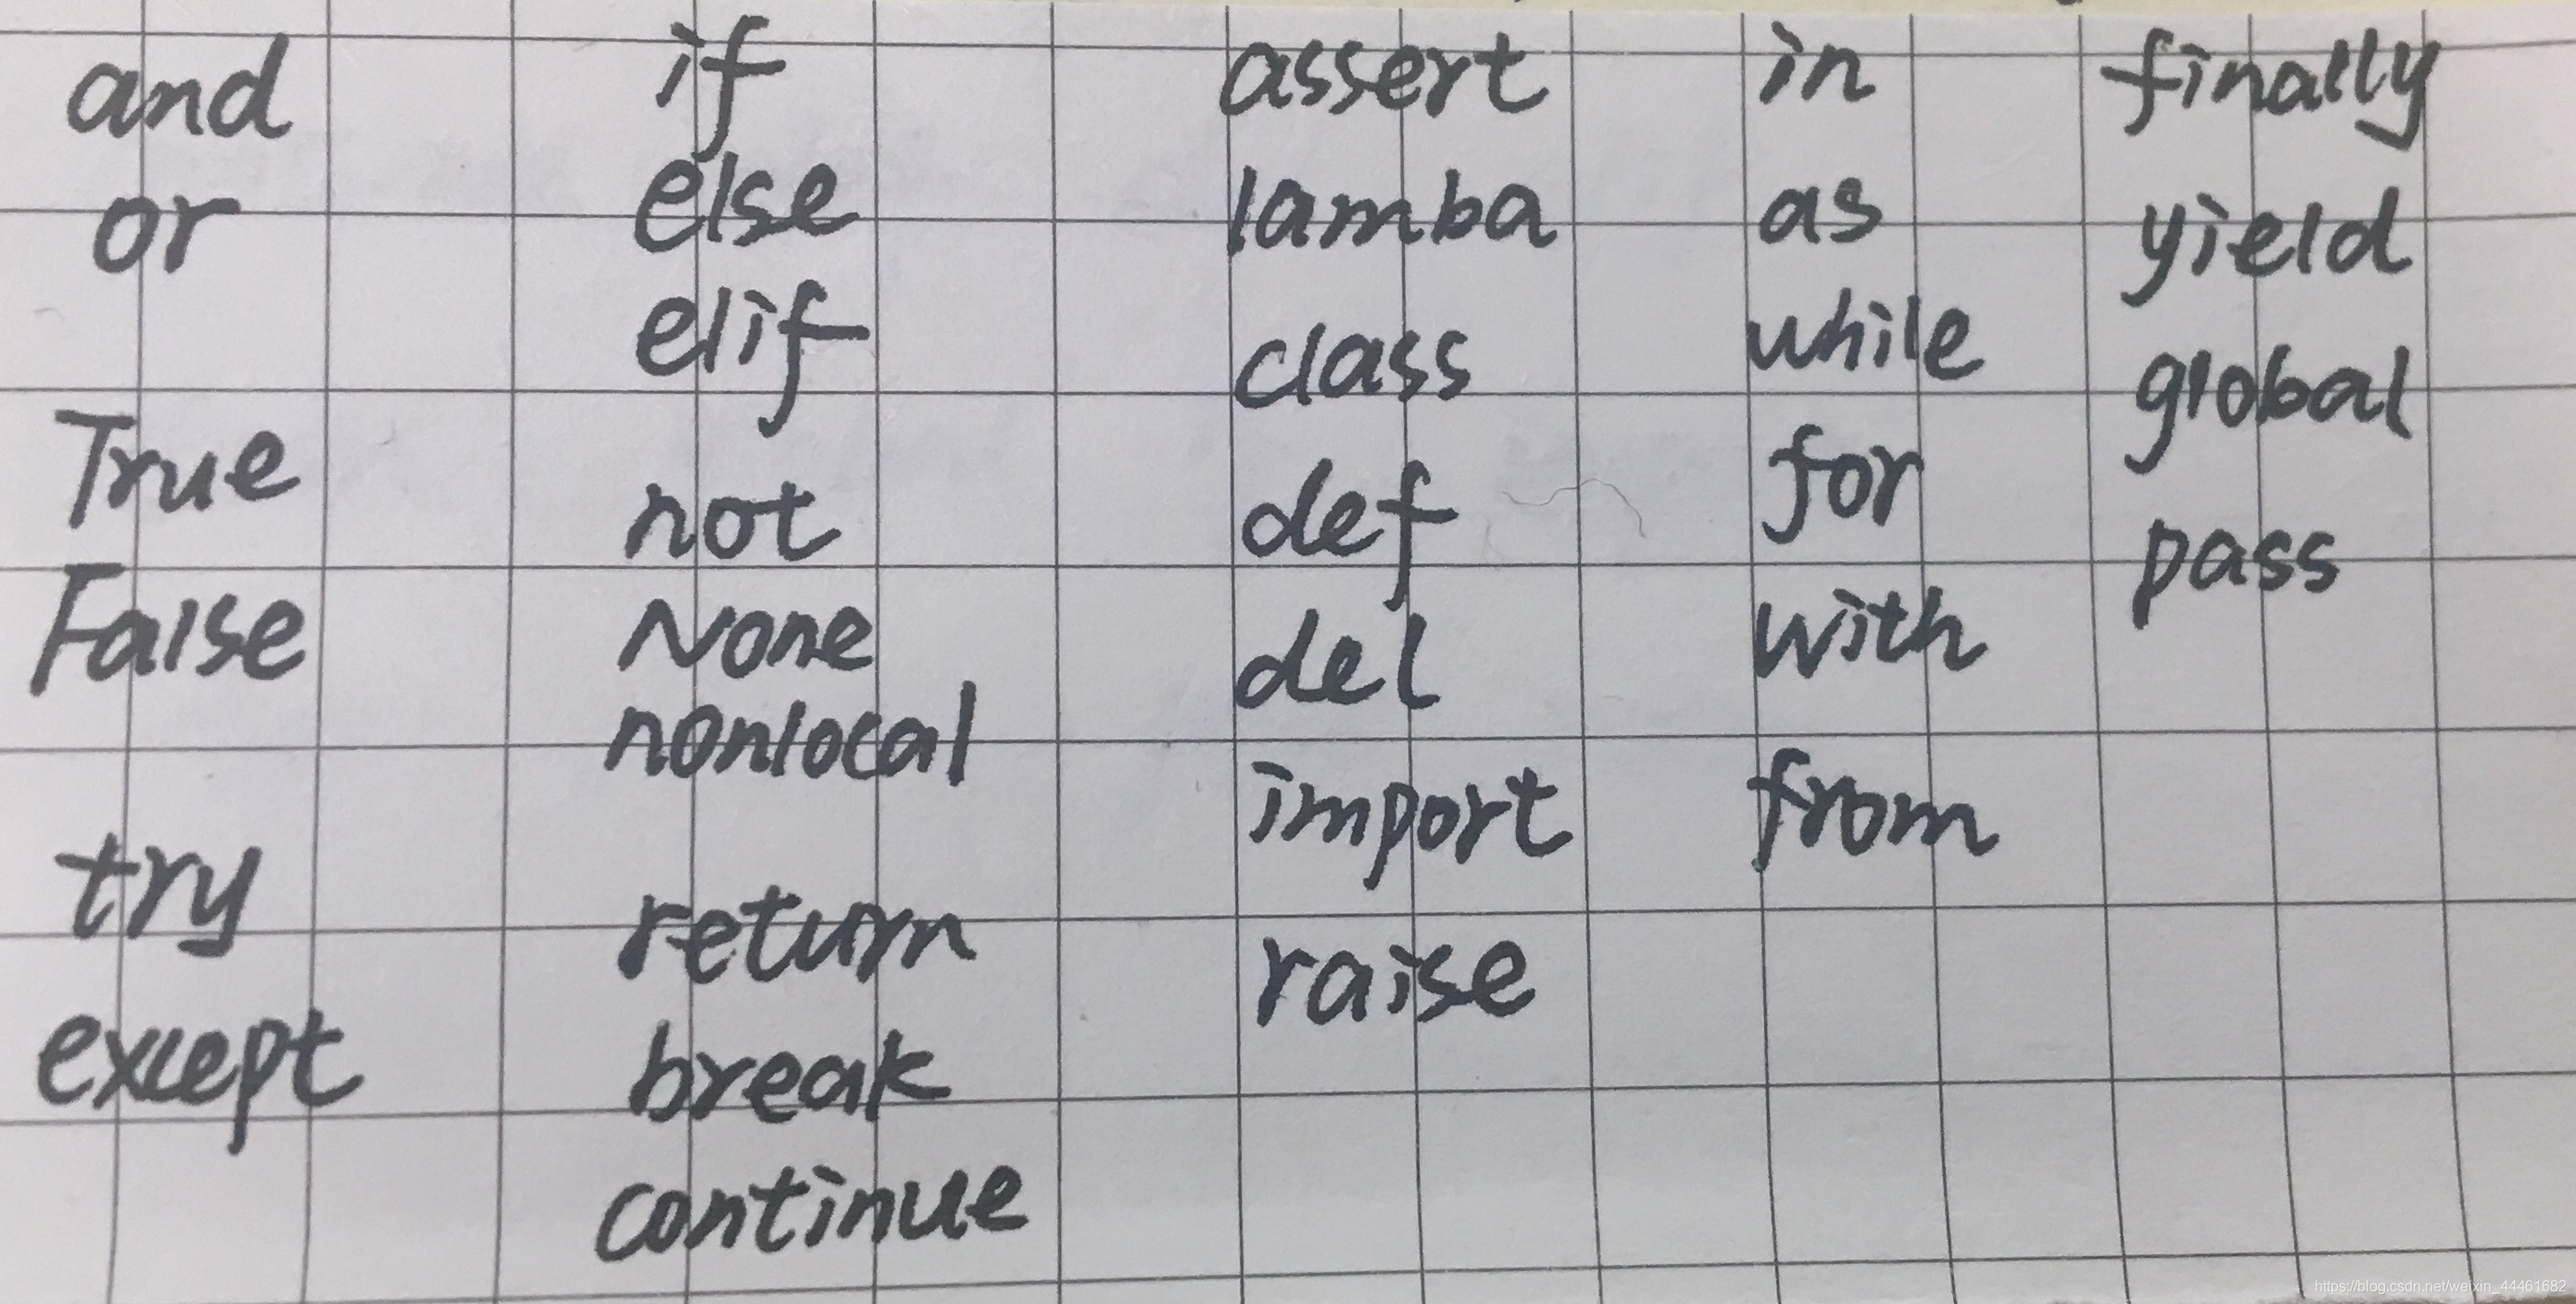 and
or
True
False
try
except
if
else
elif
not
None
nonlocal
return
break
continue
assert
lamba
class
def
del
import
raise
in
as
while
for
with
from
finally
yield
global
pass
https://blog.csdn.net/weixin_44461682